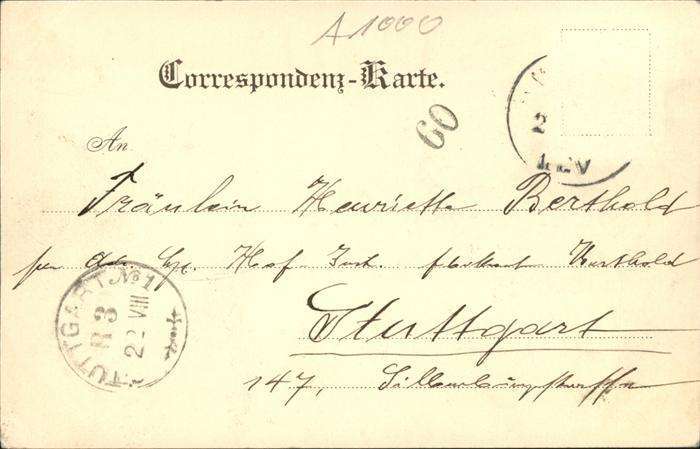 A 1000
Correspondenz-Karte.
60
2
An
Fräulein Henriette Berthold
per Adr. Hof Berthold
Stuttgart
STUTTGART No 1
R 3
22 VIII
147,